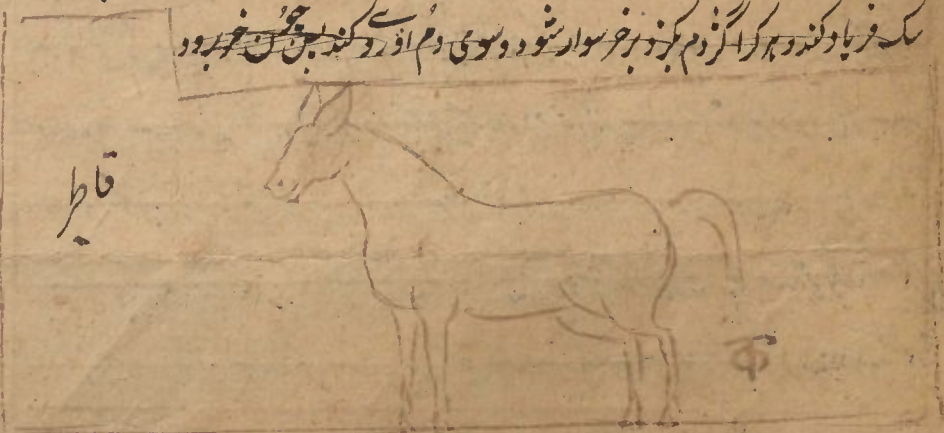 سک فریاد کند و هر کرا گژدم بگزد بر خر سوار شود و سوی دم او روی کند پس چون خر برود
قاطر